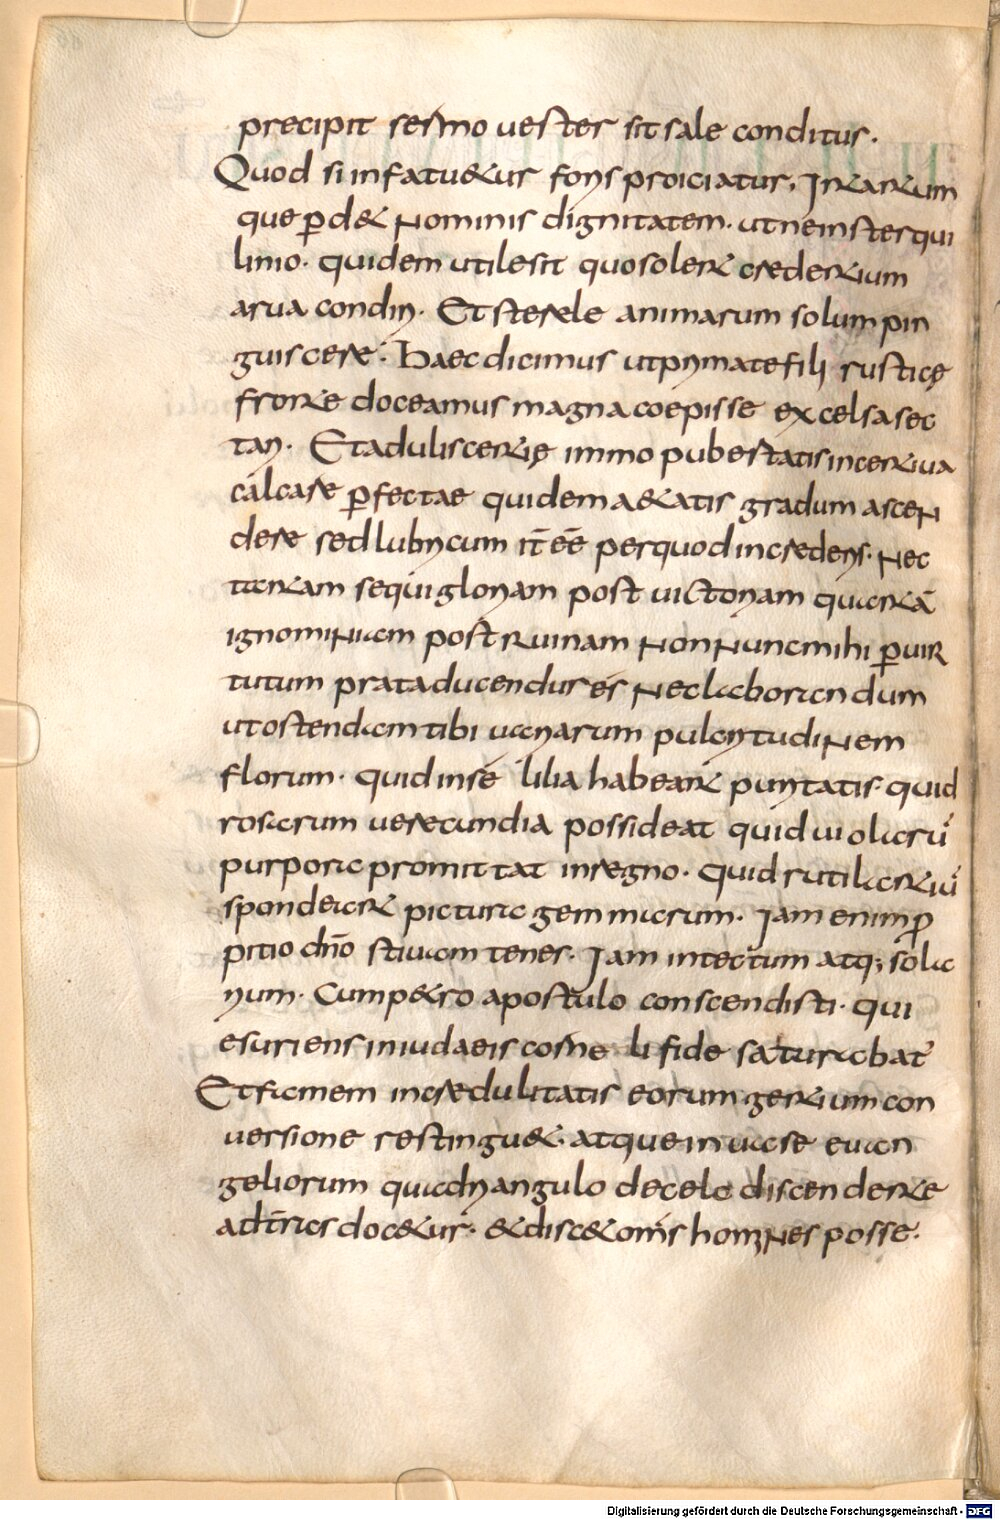 precipit sermo uester sit sale conditus.
Quod si infatu&ur foris proiciatur, In tantum
que ꝑd& nominis dignitatem. ut ne in sterqui
linio. quidem utile sit quo solent credentium
arua condiri. Et sterele animarum solum pin
guiscere. Haec dicimus ut prima te fili rusticę
fronte doceamus magna coepisse excelsa sec
tari. Et aduliscentię immo pubertatis incentiua
calcare ꝑfectae quidem a&atis gradum ascen
dere sed lubricum it̄ ēē per quod incredens. Nec
tantam sequi gloriam post uictoriam quantā
ignominiam post ruinam non nunc mihi ꝑ uir
tutum prata ducendus es nec laborandum
ut ostendam tibi uariarum pulcritudinem
florum. quid in se lilia habeant puritatis. quid
rosarum uerecundia possideat quid uiolarū
purpora promittat in regno. Quid rutilantiū
spondeant pictura gemmarum. Iam enim ꝓ
pitio dn̄o stiuam tenes. Iam in tectum atq; sola
rium. Cum p&ro apostulo conscendisti. qui
esuriens in iudaeis corne li fide saturabat
Et famem incredulitatis eorum gentium con
uersione restingu&. atque in uase euan
geliorum quadriangulo de celo discendente
ad terras doc&ur. &disc& om̄s homines posse.
Digitalisierung gefördert durch die Deutsche Forschungsgemeinschaft - DFG